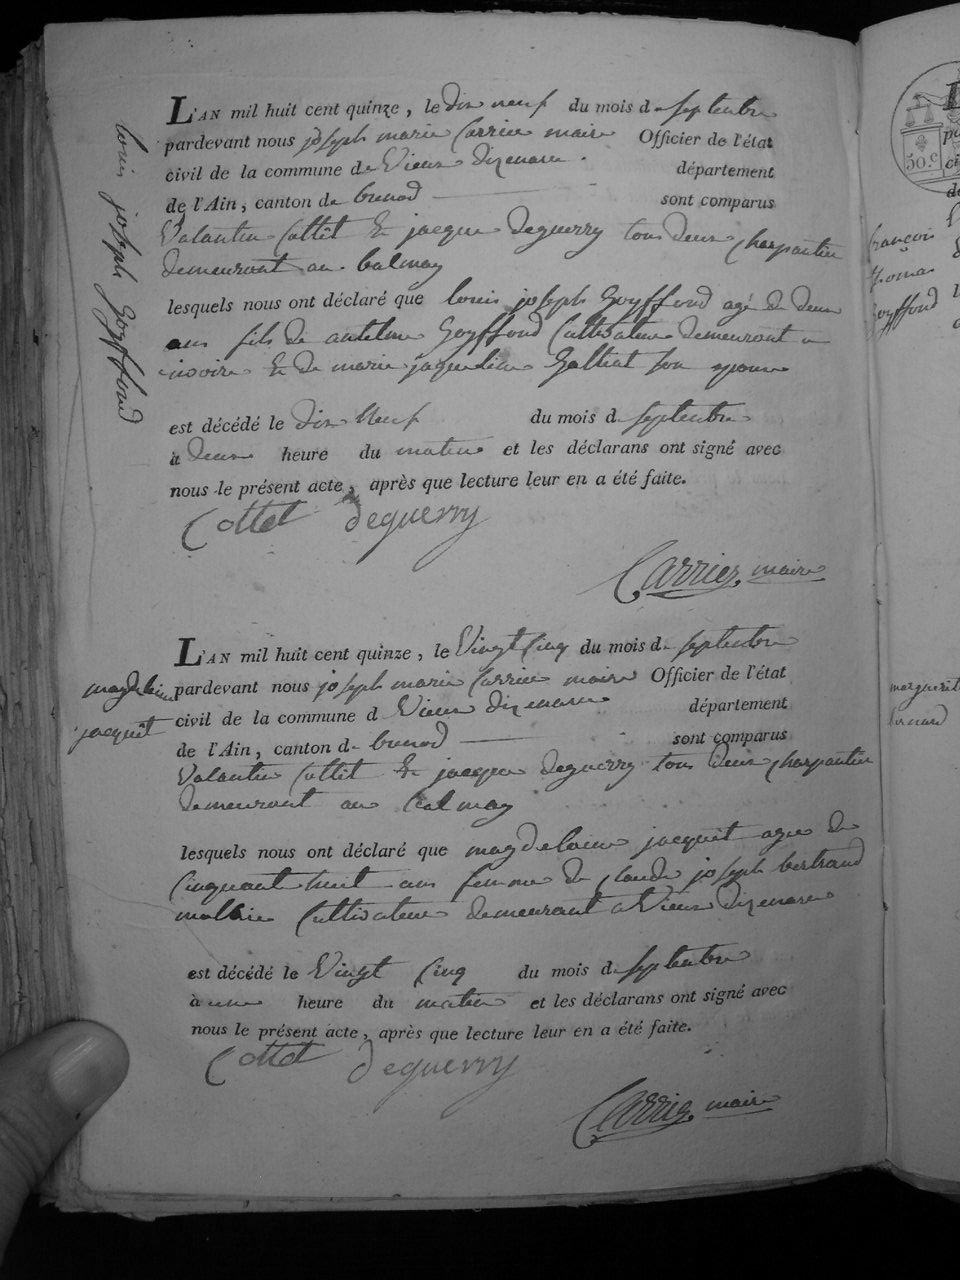 L'AN mil huit cent quinze, le dix neuf du mois de septembre
pardevant nous joseph marie Carrier maire Officier de l'état
civil de la commune de Vieux dizenave département
de l'Ain, canton de brenod sont comparus
Valantin Cottet & jacque deguerry tous deux charpantier
demeurant au balmay
lesquels nous ont déclaré que louis joseph Goyffond agé de deux
ans fils de antelme Goyffond Cultivateur demeurant a
& de marie jaqueline son epouse
est décédé le dix Neuf du mois de septembre
à deux heure du matin et les déclarans ont signé avec
nous le présent acte, après que lecture leur en a été faite.
Cottet deguerry
Carrier, maire
louis joseph Goyffond
L'AN mil huit cent quinze, le Vingt Cinq du mois de septembre
pardevant nous joseph marie Carrier maire Officier de l'état
civil de la commune d Vieux dizenave département
de l'Ain, canton de brenod sont comparus
Valantin Cottet & jacque deguerry tous deux charpantier
demeurant au balmay
lesquels nous ont déclaré que magdelaine jacquet agee de
Cinquante huit ans femme de claude joseph bertrand
Cultivateur demeurant a Vieux dizenave
est décédé le Vingt Cinq du mois de septembre
à une heure du matin et les déclarans ont signé avec
nous le présent acte, après que lecture leur en a été faite.
Cottet deguerry
Carrier maire
magdelaine
jacquet
50.c
françois
thomas
goyffond
marguerite
bernard